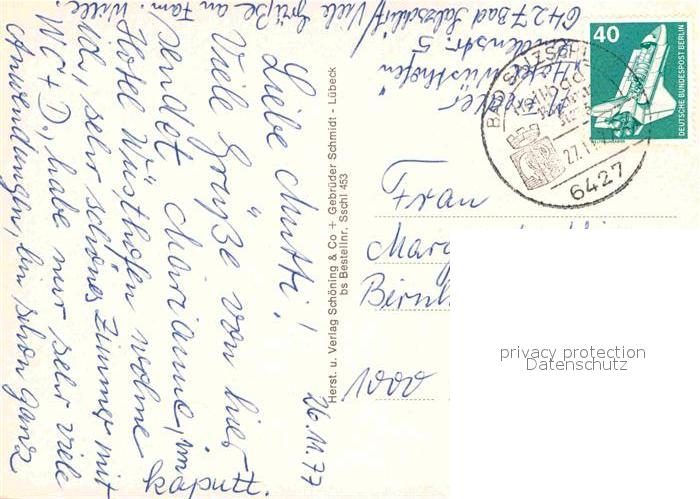 26.11.77
Liebe Mutti!
Viele Grüße von hier
sendet Marianne, im
Hotel Wüsthofen wohne
ich, sehr schönes Zimmer mit
WC + D., habe nur sehr viele
Anwendungen, bin schon ganz
kaputt.
Viele Grüße an Fam. Wille.
Hotel Wüsthofen
Lindenstr. 5
6427 Bad Salzschlirf
Herst. u. Verlag Schöning & Co + Gebrüder Schmidt - Lübeck
bs Bestellnr. Sschl 453
40
DEUTSCHE BUNDESPOST BERLIN
BAD SALZSCHLIRF
27.11.
6427
Frau
1000
privacy protection
Datenschutz